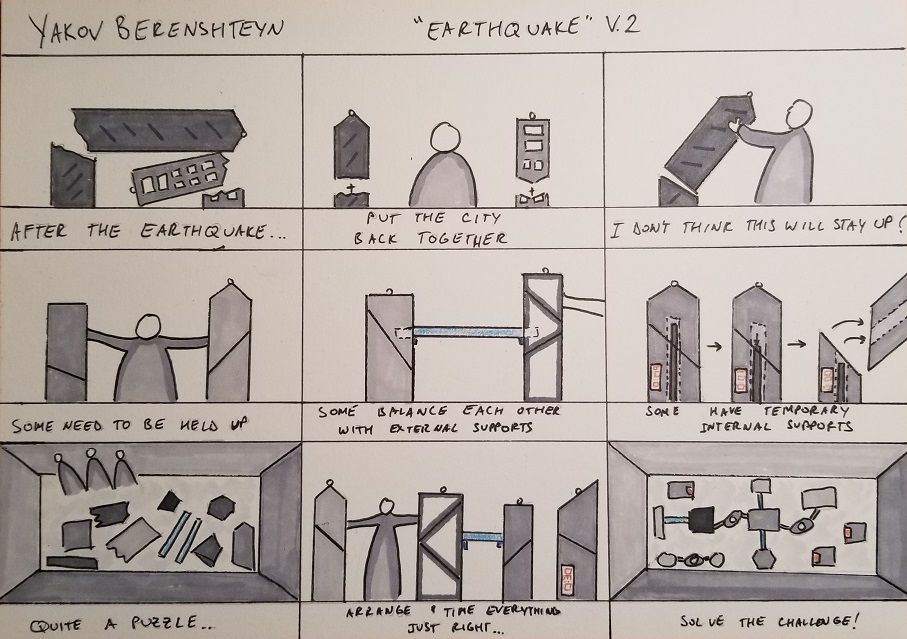 YAKOV BERENSHTEYN
"EARTHQUAKE" V.2
AFTER THE EARTHQUAKE...
PUT THE CITY
BACK TOGETHER
I DON'T THINK THIS WILL STAY UP!
SOME NEED TO BE HELD UP
SOME BALANCE EACH OTHER
WITH EXTERNAL SUPPORTS
SOME HAVE TEMPORARY
INTERNAL SUPPORTS
QUITE A PUZZLE...
ARRANGE & TIME EVERYTHING
JUST RIGHT...
SOLVE THE CHALLENGE!